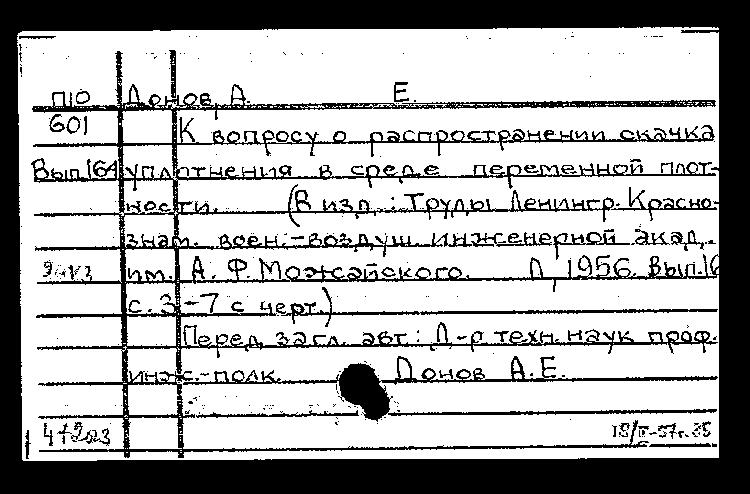 П10 Донов, А. Е.
601 К вопросу о распространении скачка
Вып.164 уплотнения в среде переменной плот-
ности. (В изд.: Труды Ленингр. Красно-
знам. воен.-воздуш. инженерной акад.
им. А. Ф. Можайского. Л, 1956. Вып.16
с. 3-7 с черт.)
Перед загл. авт.: Д-р техн. наук проф.
инж.-полк. Донов А.Е.